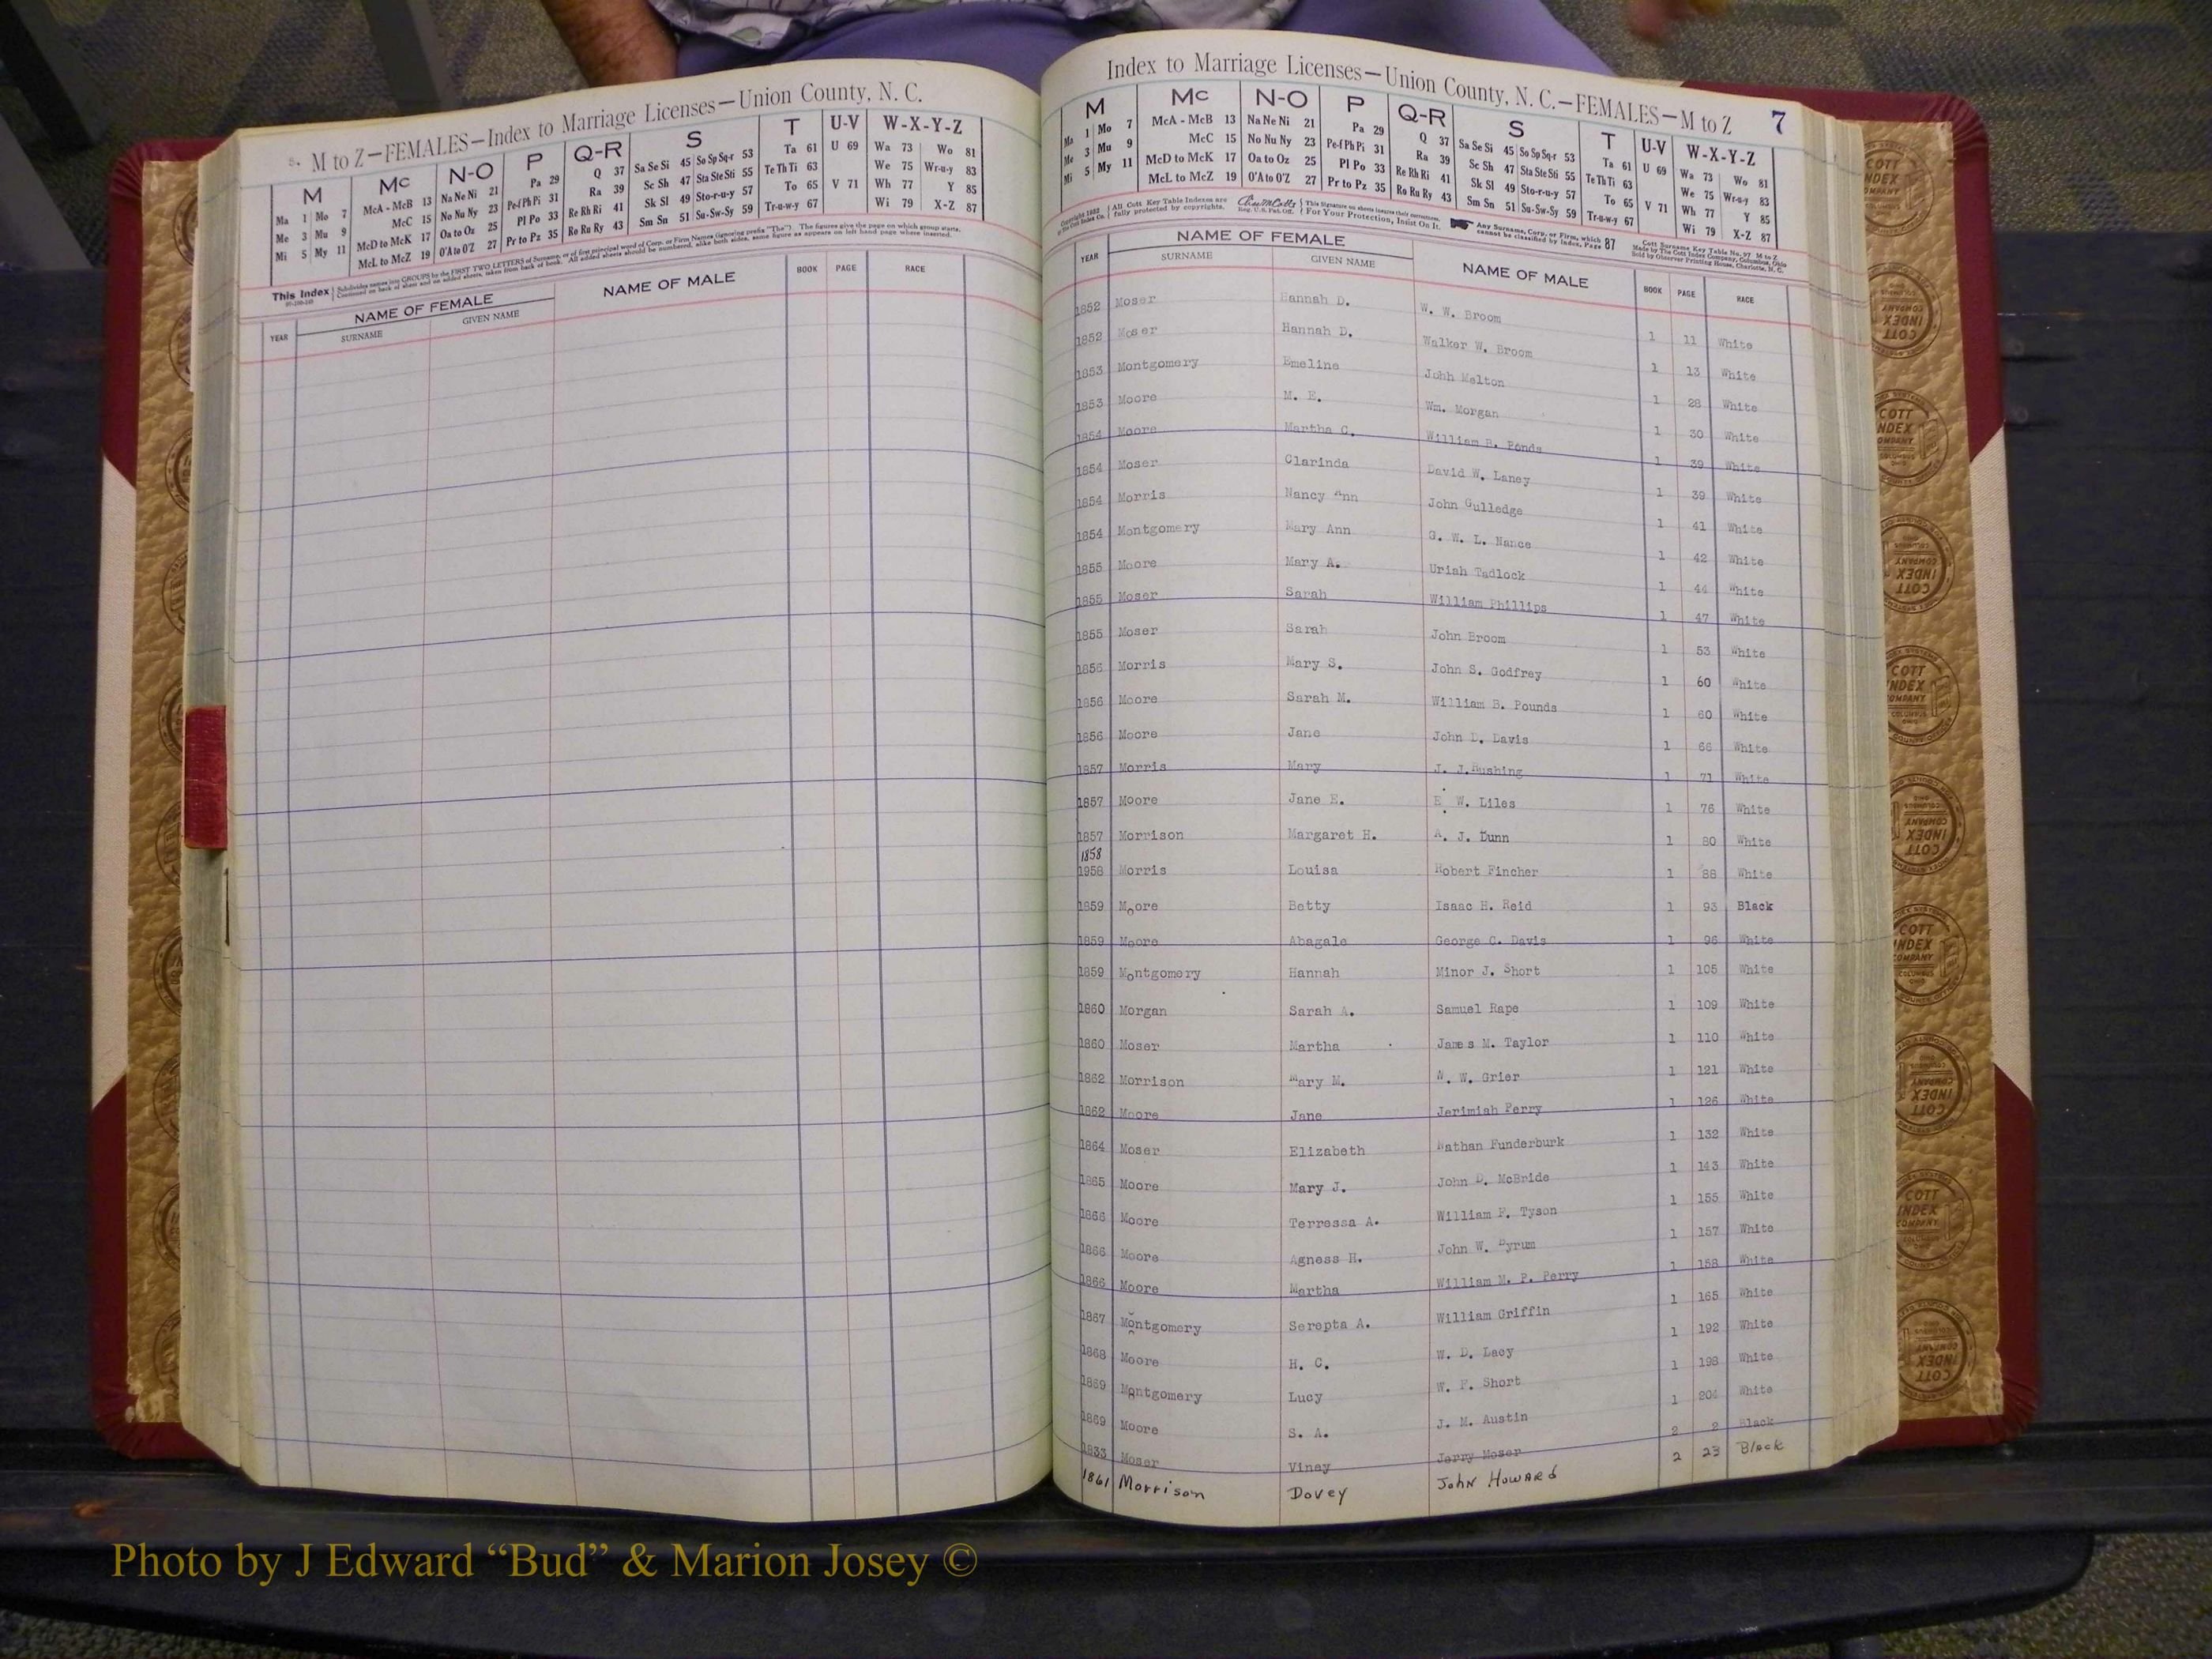 5. M to Z—FEMALES—Index to Marriage Licenses—Union County, N. C.
M Mc N-O P Q-R S T U-V W-X-Y-Z
Ma 1 Mo 7 McA - McB 13 Na Ne Ni 21 Pa 29 Q 37 Sa Se Si 45 So Sp Sq-r 53 Ta 61 U 69 Wa 73 Wo 81
Me 3 Mu 9 McC 15 No Nu Ny 23 Pe-f Ph Pi 31 Ra 39 Sc Sh 47 Sta Ste Sti 55 Te Th Ti 63 We 75 Wr-u-y 83
Mi 5 My 11 McD to McK 17 Oa to Oz 25 Pl Po 33 Re Rh Ri 41 Sk Sl 49 Sto-r-u-y 57 To 65 V 71 Wh 77 Y 85
McL to McZ 19 O'A to O'Z 27 Pr to Pz 35 Ro Ru Ry 43 Sm Sn 51 Su-Sw-Sy 59 Tr-u-w-y 67 Wi 79 X-Z 87
This Index Subdivides names into GROUPS by the FIRST TWO LETTERS of Surname, or of first principal word of Corp. or Firm Names (ignoring prefix "The"). The figures give the page on which group starts.
Continued on back of sheet and on added sheets, taken from back of book. All added sheets should be numbered, alike both sides, same figure as appears on left hand page where inserted.
YEAR NAME OF FEMALE NAME OF MALE BOOK PAGE RACE
SURNAME GIVEN NAME
Index to Marriage Licenses—Union County, N. C.—FEMALES—M to Z 7
M Mc N-O P Q-R S T U-V W-X-Y-Z
Ma 1 Mo 7 McA - McB 13 Na Ne Ni 21 Pa 29 Q 37 Sa Se Si 45 So Sp Sq-r 53 Ta 61 U 69 Wa 73 Wo 81
Me 3 Mu 9 McC 15 No Nu Ny 23 Pe-f Ph Pi 31 Ra 39 Sc Sh 47 Sta Ste Sti 55 Te Th Ti 63 We 75 Wr-u-y 83
Mi 5 My 11 McD to McK 17 Oa to Oz 25 Pl Po 33 Re Rh Ri 41 Sk Sl 49 Sto-r-u-y 57 To 65 V 71 Wh 77 Y 85
McL to McZ 19 O'A to O'Z 27 Pr to Pz 35 Ro Ru Ry 43 Sm Sn 51 Su-Sw-Sy 59 Tr-u-w-y 67 Wi 79 X-Z 87
All Cott Key Table Indexes are fully protected by copyrights. This Signature on sheets insures their correctness. For Your Protection, Insist On It. Any Surname, Corp. or Firm, which cannot be classified by Index, Page 87
Cott Surname Key Table No. 97 M to Z
Made by The Cott Index Company, Columbus, Ohio
Sold by Observer Printing House, Charlotte, N. C.
YEAR NAME OF FEMALE NAME OF MALE BOOK PAGE RACE
SURNAME GIVEN NAME
1852 Moser Hannah D. W. W. Broom 1 11 White
1852 Moser Hannah D. Walker W. Broom 1 13 White
1853 Montgomery Emeline Johh Melton 1 28 White
1853 Moore M. E. Wm. Morgan 1 30 White
1854 Moore Martha C. William B. Ponds 1 39 White
1854 Moser Clarinda David W. Laney 1 39 White
1854 Morris Nancy Ann John Gulledge 1 41 White
1854 Montgomery Mary Ann G. W. L. Nance 1 42 White
1855 Moore Mary A. Uriah Tadlock 1 44 White
1855 Moser Sarah William Phillips 1 47 White
1855 Moser Sarah John Broom 1 53 White
1856 Morris Mary S. John S. Godfrey 1 60 White
1856 Moore Sarah M. William B. Pounds 1 60 White
1856 Moore Jane John D. Davis 1 66 White
1857 Morris Mary J. J. Rushing 1 71 White
1857 Moore Jane E. E. W. Liles 1 76 White
1857 Morrison Margaret H. A. J. Dunn 1 80 White
1858
1958 Morris Louisa Robert Fincher 1 88 White
1859 Moore Betty Isaac H. Reid 1 93 Black
1859 Moore Abagale George C. Davis 1 96 White
1859 Montgomery Hannah Minor J. Short 1 105 White
1860 Morgan Sarah A. Samuel Rape 1 109 White
1860 Moser Martha James M. Taylor 1 110 White
1862 Morrison Mary M. W. W. Grier 1 121 White
1862 Moore Jane Jerimiah Perry 1 126 White
1864 Moser Elizabeth Nathan Funderburk 1 132 White
1865 Moore Mary J. John D. McBride 1 143 White
1866 Moore Terressa A. William F. Tyson 1 155 White
1866 Moore Agness H. John W. Byrum 1 157 White
1866 Moore Martha William M. P. Perry 1 158 White
1867 Montgomery Serepta A. William Griffin 1 165 White
1868 Moore H. C. W. D. Lacy 1 192 White
1869 Montgomery Lucy W. F. Short 1 198 White
1869 Moore S. A. J. M. Austin 1 204 White
1833 Moser Viney Jerry Moser 2 2 Black
1861 Morrison Dovey John Howard 2 23 Black
Photo by J Edward “Bud” & Marion Josey ©